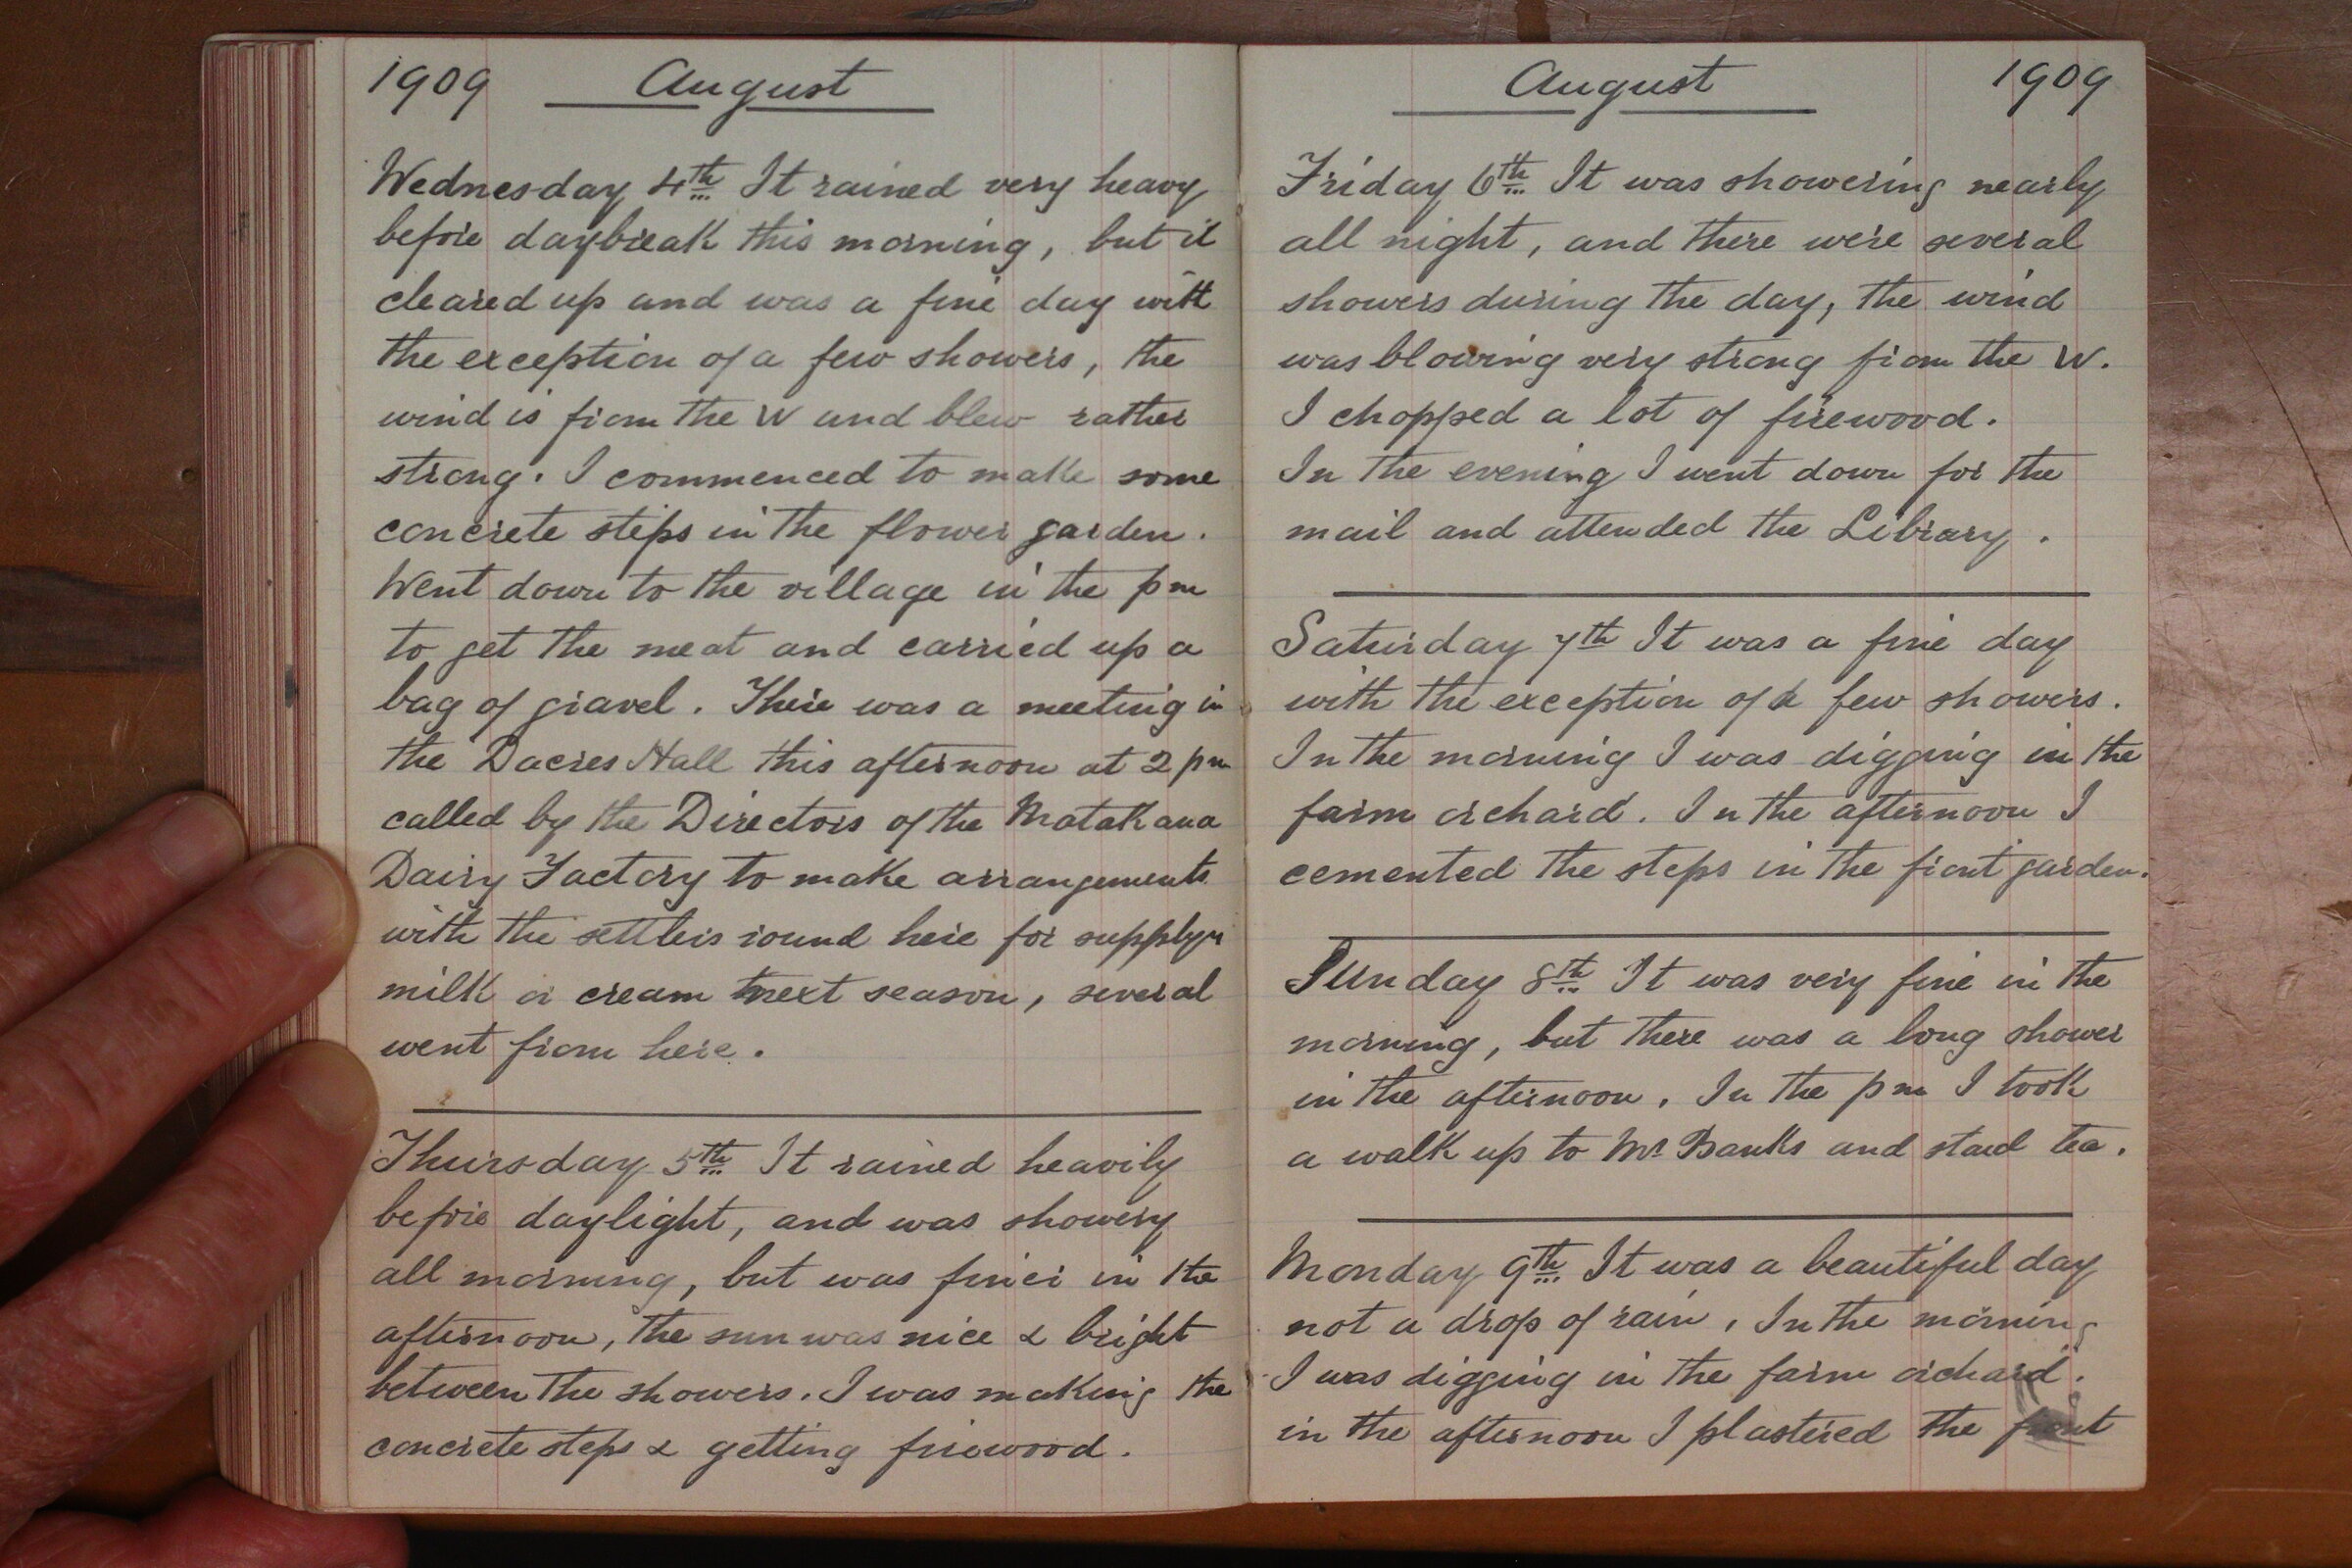 1909 August
Wednesday 4th It rained very heavy
before daybreak this morning, but it
cleared up and was a fine day with
the exception of a few showers, the
wind is from the W and blew rather
strong. I commenced to make some
concrete steps in the flower garden.
Went down to the village in the pm
to get the meat and carried up a
bag of gravel. There was a meeting in
the Dacres Hall this afternoon at 2 pm
called by the Directors of the Matakana
Dairy Factory to make arrangements
with the settlers round here for supplyn
milk or cream next season, several
went from here.
Thursday 5th It rained heavily
before daylight, and was showery
all morning, but was finer in the
afternoon, the sun was nice & bright
between the showers. I was making the
concrete steps & getting firewood.
August 1909
Friday 6th It was showering nearly
all night, and there were several
showers during the day, the wind
was blowing very strong from the W.
I chopped a lot of firewood.
In the evening I went down for the
mail and attended the Library.
Saturday 7th It was a fine day
with the exception of a few showers.
In the morning I was digging in the
farm orchard. In the afternoon I
cemented the steps in the front garden.
Sunday 8th It was very fine in the
morning, but there was a long shower
in the afternoon. In the pm I took
a walk up to Mr Banks and staid tea.
Monday 9th It was a beautiful day
not a drop of rain. In the morning
I was digging in the farm orchard.
in the afternoon I plastered the front